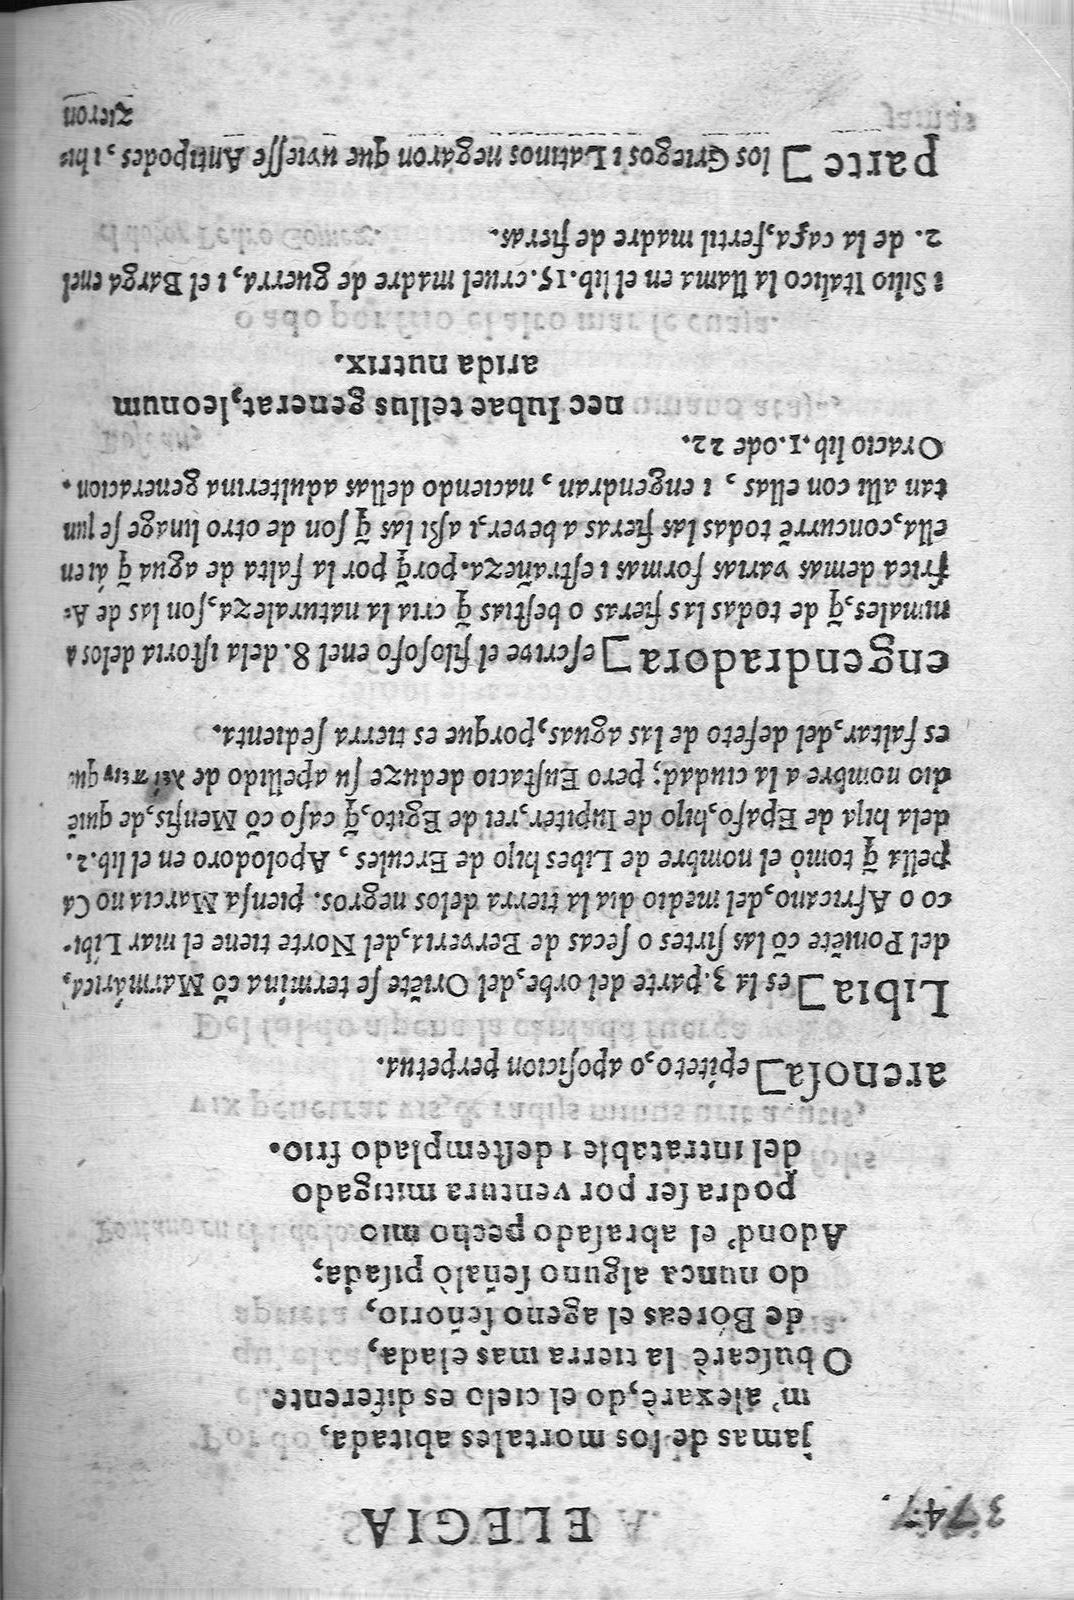 3747.
ELEGIA
jamas de los mortales abitada,
m' alexarè, do el cielo es diferente.
O buscarè la tierra mas elada,
de Bóreas el ageno señorio,
do nunca alguno señalò pisada;
Adond' el abrasado pecho mio
podra ser por ventura mitigado
del intratable i destemplado frio.
arenosa] epíteto, o aposicion perpetua.
Libia] es la 3. parte del orbe, del Oriẽte se termína cõ Marmárica,
del Poniẽte cõ las sirtes o secas de Berveria, del Norte tiene el mar Libi-
co o Africano, del medio dia la tierra delos negros. piensa Marciano Ca
pella q̃ tomò el nombre de Libes hijo de Ercules, Apolodoro en el lib. 2.
dela hija de Epafo, hijo de Iupiter, rei de Egito, q̃ caso cõ Menfis, de quiẽ
dio nombre a la ciudad; pero Eustacio deduze su apellido de λείπειν que
es faltar, del defeto de las aguas, porque es tierra sedienta.
engendradora] escrive el filosofo enel 8. dela istoria delos a
nimales, q̃ de todas las fieras o bestias q̃ cria la naturaleza, son las de A-
frica demas varias formas i estrañeza. porq̃ por la falta de agua q̃ ái en
ella, concurrẽ todas las fieras a bever. i assi las q̃ son de otro linage se jun
tan alli con ellas, i engendran, naciendo dellas adulterina generacion.
Oracio lib. 1. ode 22.
nec Iubae tellus generat, leonum
arida nutrix.
i Silio Italico la llama en el lib. 15. cruel madre de guerra, i el Barga enel
2. de la caça, fertil madre de fieras.
parte] los Griegos i Latinos negáron que uviesse Antipodes, i hi-
zieron